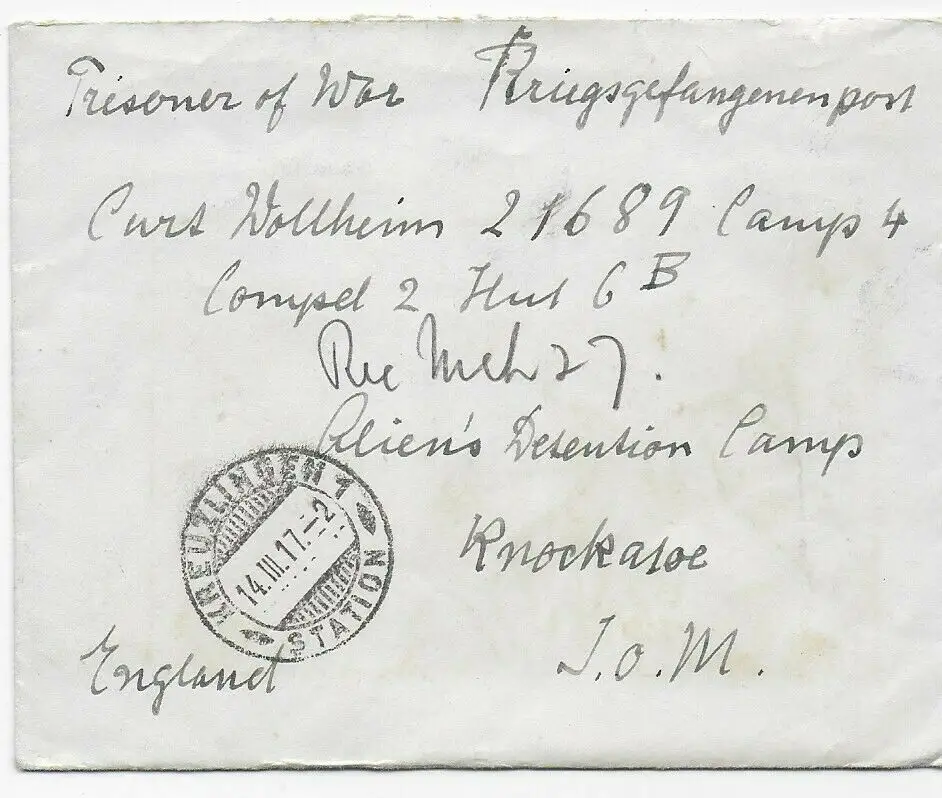 Prisoner of War Kriegsgefangenenpost
Curt Wollheim 21689 Camp 4
Compd 2 Hut 6 B
Rec Mch 27.
Alien's Detention Camp
Knockaloe
I.O.M.
England
KREUZLINGEN 1
14.III.17.-2
STATION